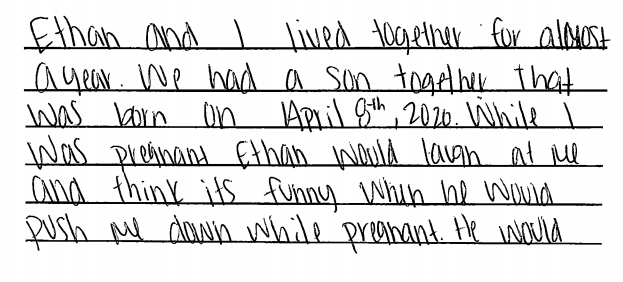 Ethan and I lived together for almost
a year. We had a son together that
was born on April 8th, 2020. While I
was pregnant Ethan would laugh at me
and think its funny when he would
push me down while pregnant. He would